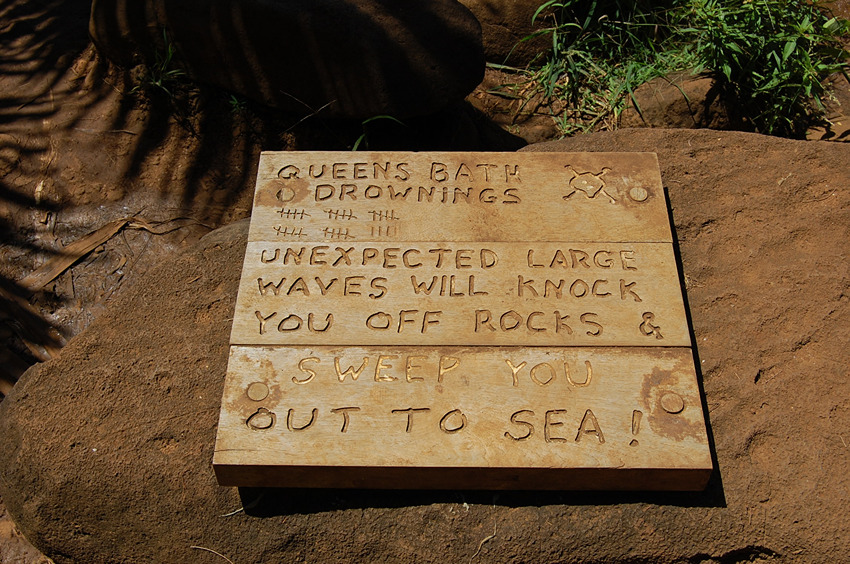 QUEENS BATH
DROWNINGS
UNEXPECTED LARGE
WAVES WILL KNOCK
YOU OFF ROCKS &
SWEEP YOU
OUT TO SEA!